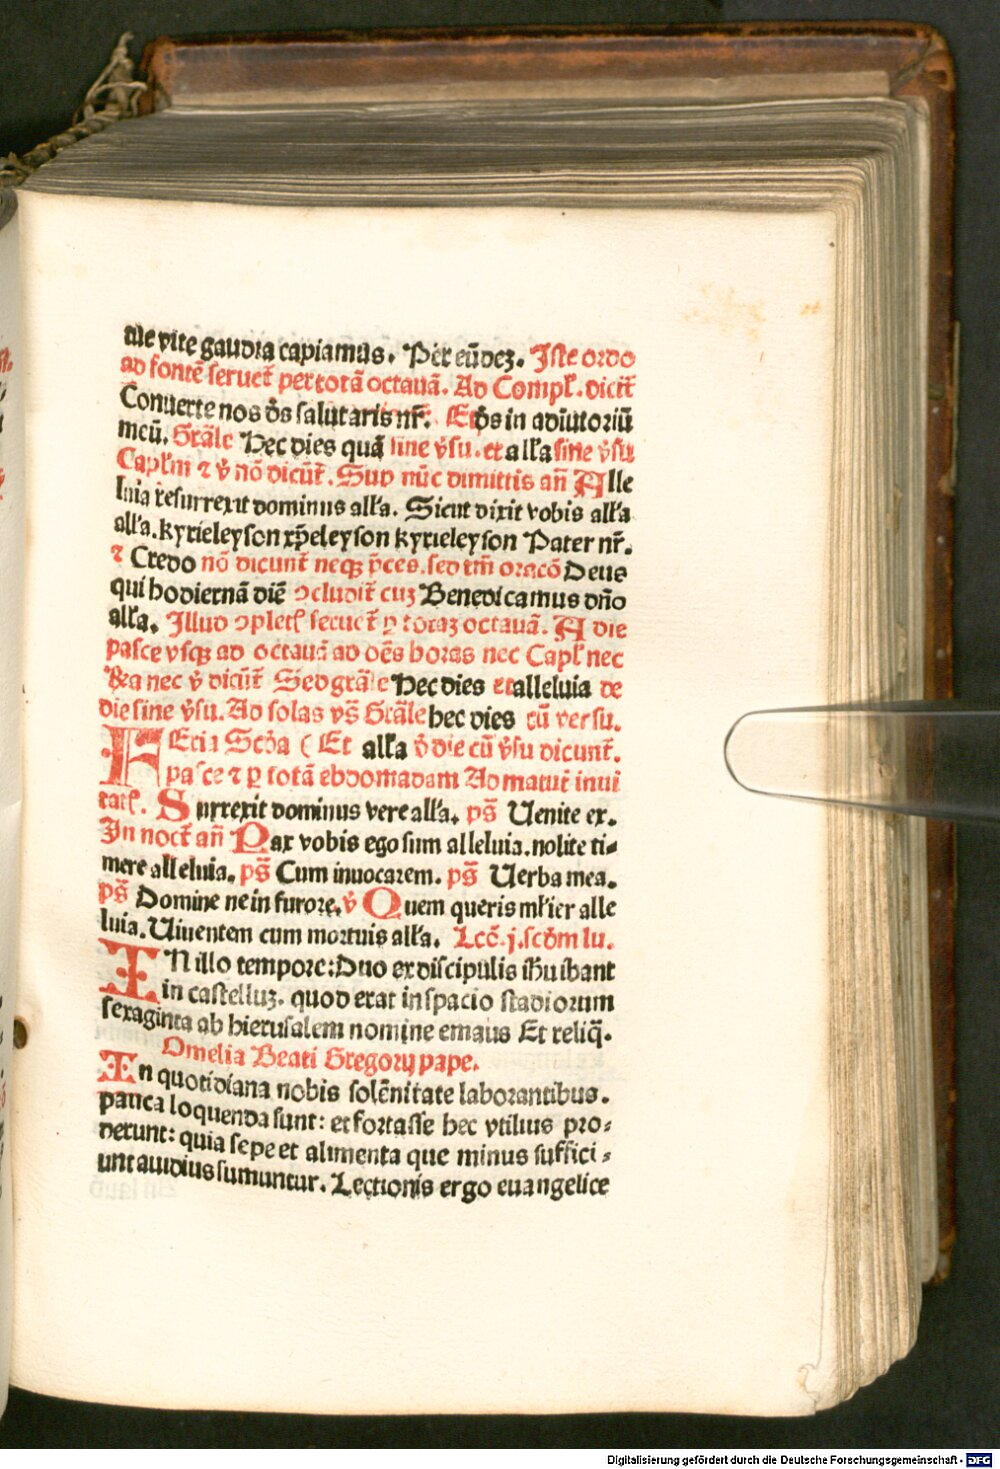 tue vite gaudia capiamus. Per eūdeʒ. Iste ordo
ad fontē seruet̄ per totā octauā. Ad Compl̄. dicit̄
Conuerte nos d̄s salutaris nr̄. Et d̄s in adiutoriū
meū. Grāle Hec dies quā sine v̄su. et all'a sine v̄su
Capl'm ⁊ v̄ nō dicūt̄. Sup nūc dimittis añ Alle
luia resurrexit dominus all'a. Sicut dixit vobis all'a
all'a. kyrieleyson xp̄eleyson kyrieleyson Pater nr̄.
⁊ Credo nō dicunt̄ neqʒ p̄ces. sed tm̄ oracō Deus
qui hodiernā diē ↄcludit̄ cuʒ Benedicamus dño
all'a. Illud ↄplet̄ seruet̄ ꝑ totaʒ octauā. A die
pasce vsqʒ ad octauā ad oēs horas nec Capl' nec
R̄a nec v̄ dicūt̄ Sed grāle Hec dies et alleluia de
die sine v̄su. Ad solas vs̄ Grāle hec dies cū versu.
FEria Scd̄a ( Et all'a d̄ die cū v̄su dicunt̄.
pasce ⁊ ꝑ totā ebdomadam Ad matut̄ inui
tatl̄. Surrexit dominus vere all'a. ps̄ Uenite ex.
In noct̄ añ Pax vobis ego sum alleluia. nolite ti-
mere alleluia. ps̄ Cum inuocarem. ps̄ Uerba mea.
ps̄ Domine ne in furore. v̄ Quem queris ml'ier alle
luia. Uiuentem cum mortuis all'a. Lcc̄. j. scd̄m lu.
IN illo tempore: Duo ex discipulis ih̄u ibant
in castelluʒ. quod erat in spacio stadiorum
sexaginta ab hierusalem nomine emaus Et reliq̄.
Omelia Beati Gregorij pape.
In quotidiana nobis solēnitate laborantibus.
pauca loquenda sunt: et fortasse hec vtilius pro-
derunt: quia sepe et alimenta que minus suffici-
unt auidius sumuntur. Lectionis ergo euangelice
Digitalisierung gefördert durch die Deutsche Forschungsgemeinschaft - DFG